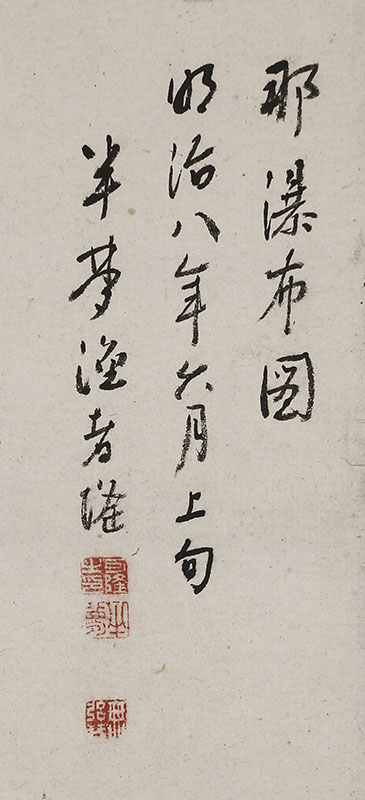 耶瀑布図
明治八年六月上旬
半夢漁者隆